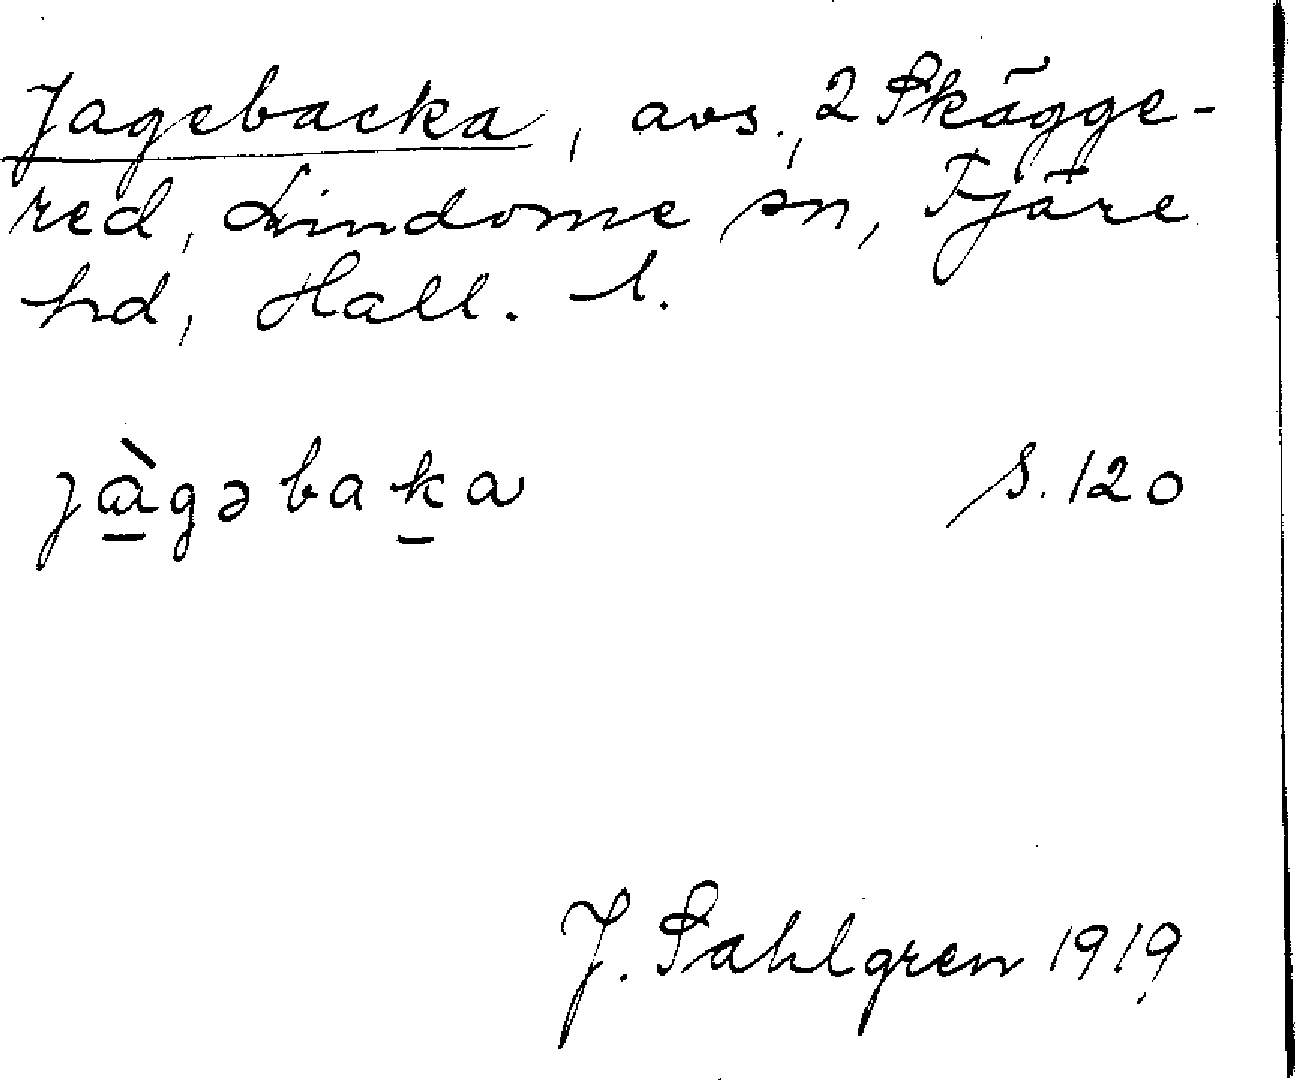 Jagebacka, avs., 2 Skägge-
red, Lindome sn, Fjäre
hd, Hall. l.
jàgəbaka S. 120
J. Sahlgren 1919